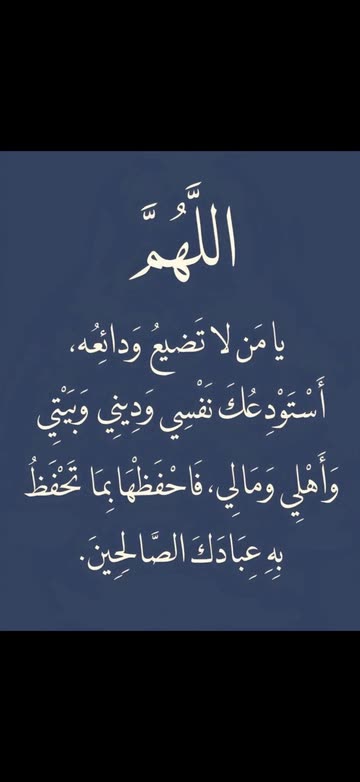 اللَّهُمَّ
يا مَن لا تَضيعُ وَدائِعُه،
أَسْتَوْدِعُكَ نَفْسِي وَدِينِي وَبَيْتِي
وَأَهْلِي وَمَالِي، فَاحْفَظْهَا بِمَا تَحْفَظُ
بِهِ عِبَادَكَ الصَّالِحِينَ.